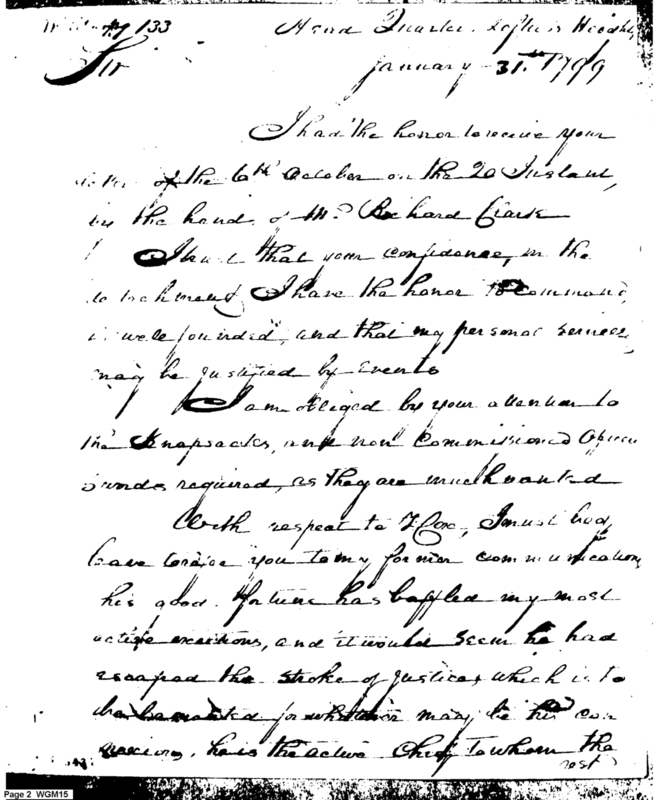 133 Head Quarters Loftus Heights
Sir January 31st 1799
I had the honor to receive your
letter of the 6th October on the 20 Instant,
by the hands of Mr. Richard Clark
I trust that your confidence, in the
detachment, I have the honor to command,
is well founded, and that my personal services,
may be justified by Events
I am obliged by your attention to
the Knapsacks, and non Commissioned Officers
swords required, as they are much wanted
With respect to Fox, I must beg,
leave to refer you to my former communications
his good fortune has baffled my most
active exertions, and it would seem he had
escaped the stroke of justice, which is to
be for whatever may be his con
nexions, he is the active Chief to whom the
rest
Page 2 WGM15